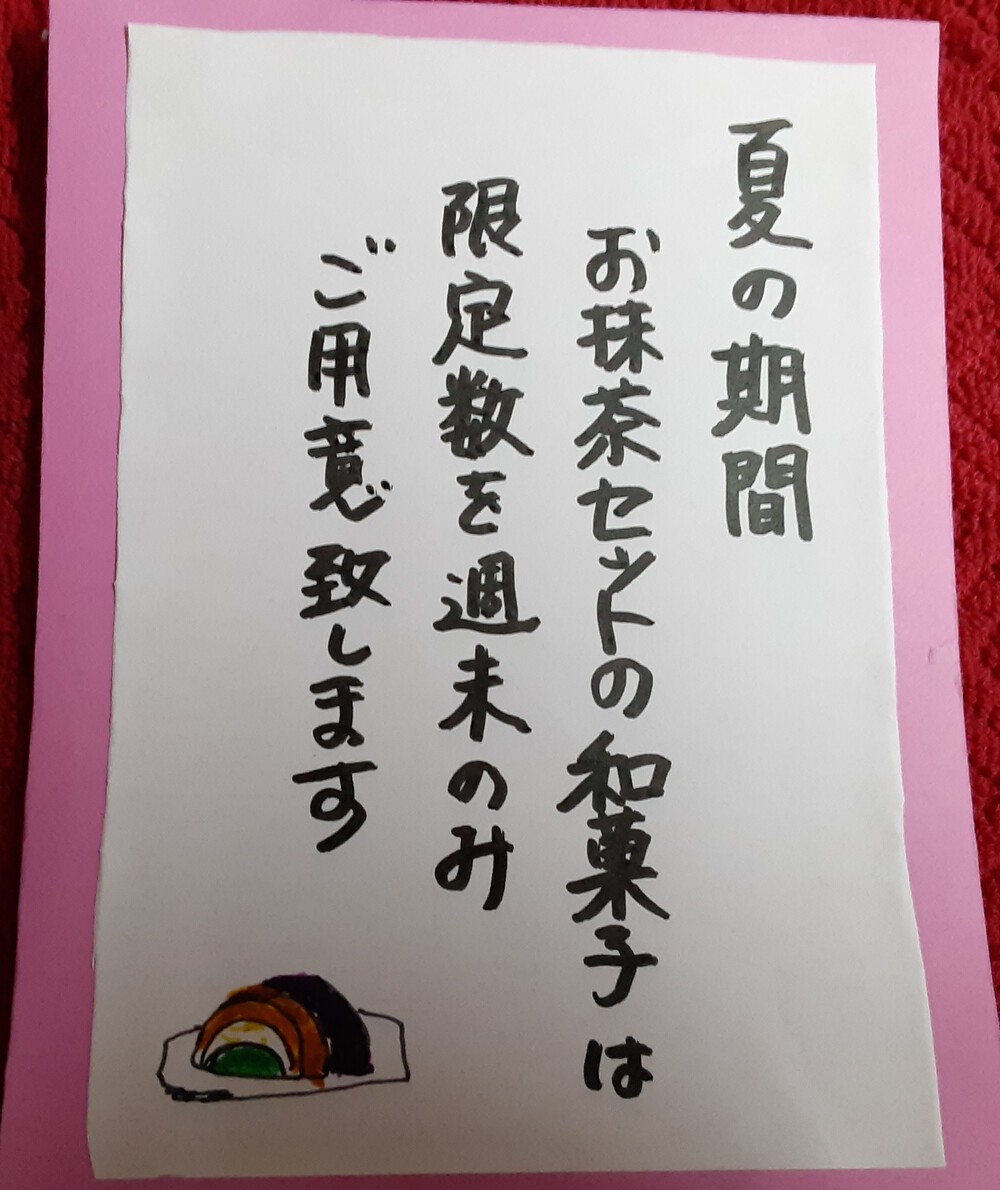 夏の期間
お抹茶セットの和菓子は
限定数を週末のみ
ご用意致します